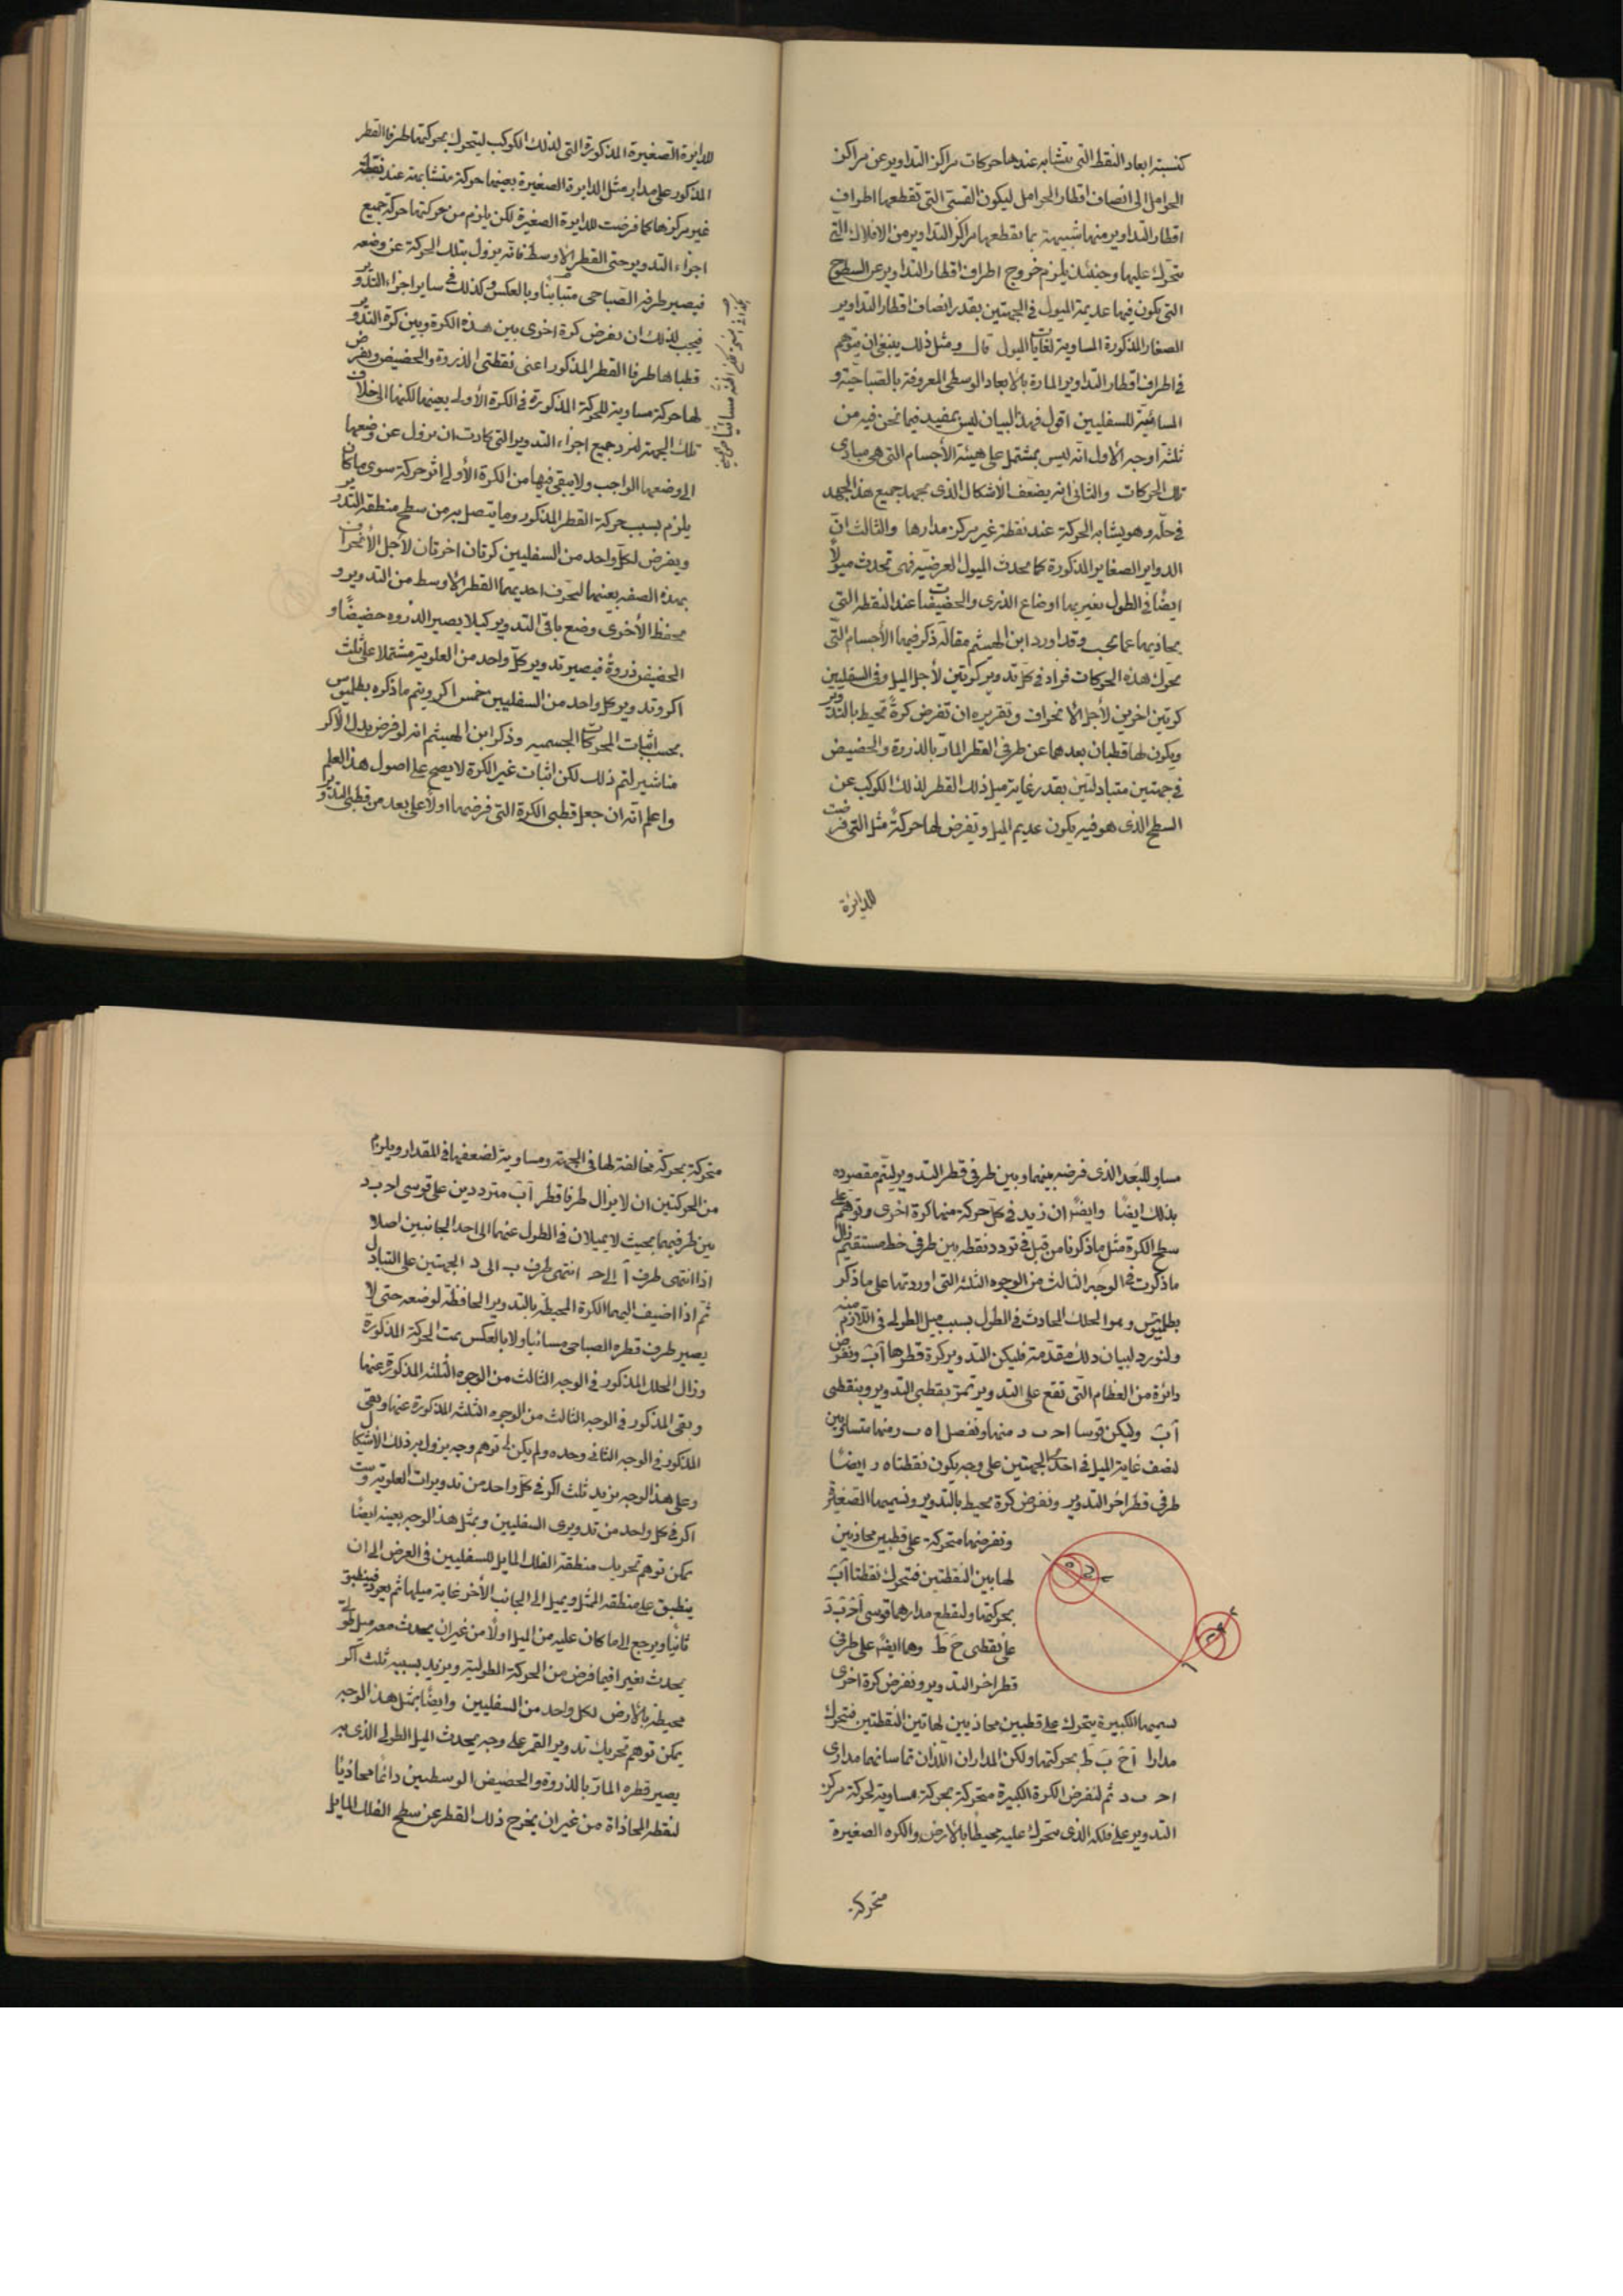 كنسبة ابعاد النقط التى تتشابه عندها حركات مراكز التداوير عن مراكز
الحوامل الى انصاف اقطار الحوامل ليكون القسى التى تقطعها اطراف
اقطار التداوير منها شبيهة بما يقطعها مراكز التداوير من الافلاك التى
تتحرك عليها وحينئذ يلزم خروج اطراف اقطار التداوير عن السطوح
التى يكون فيها عديمة الميول فى الجهتين بقدر انصاف اقطار التداوير
الصغار المذكورة المساوية لغايات الميول قال ومثل ذلك ينبغى ان يتوهم
فى اطراف اقطار التداوير المارة بالابعاد الوسطى المعروفة بالصباحية و
المسائية للسفليين اقول فهذا البيان ليس بمفيد فيما نحن فيه من
ثلثة اوجه الأول انه ليس بمشتمل على هيئة الأجسام التى هى مبادى
تلك الحركات والثانى انه يضعف الأشكال الذى مجهد جميع هذا الجهد
فى حله وهو يشابه الحركة عند نقطة غير مركز مدارها والثالث ان
الدواير الصغاير المذكورة كما يحدث الميول العرضية فهى تحدث ميولاً
ايضًا فى الطول بغير بها اوضاع الذرى والحضيضات عند النقطة التى
يحاذيها عما يجب وقد اورد ابن الهيثم مقالة ذكر فيها الأجسام التى
تحرك هذه الحركات فزاد فى كل تدوير كرتين لأجل الميل وفى السفليين
كرتين اخريين لأجل الانحراف وتقريره ان تفرض كرةً تحيط بالتدوير
ويكون لها قطبان بعدهما عن طرفى القطر المار بالذروة والحضيض
فى جهتين متبادلتين بقدر غاية ميل ذلك القطر لذلك الكوكب عن
السطح الذى هو فيه يكون عديم الميل وتفرض لها حركة مثل التى فرضت
للدائرة
للدايرة الصغيرة المذكورة التى لذلك الكوكب ليتحرك بحركتها طرفا القطر
المذكور على مدار مثل الدايرة الصغيرة بعينها حركة متشابهة عند نقطة
غير مركزها كما فرضت للدايرة الصغيرة لكن يلزم من حركتها حركة جميع
اجزاء التدوير حتى القطر الاوسط فانه يزول بتلك الحركة عن وضعه
فيصير طرفه الصباحى متباينًا وبالعكس وكذلك فى ساير اجزاء التدوير
فيجب لذلك ان يفرض كرة اخرى بين هذه الكرة وبين كرة التدوير
قطباها طرفا القطر المذكور اعنى نقطتى الذروة والحضيض ويفرض
لها حركة مساوية للحركة المذكورة فى الكرة الأولى بعينها لكنها الى خلاف
تلك الجهة لترد جميع اجزاء التدوير التى كادت ان يزول عن وضعها
الى وضعها الواجب ولا يبقى فيها من الكرة الأولى اثر حركة سوى ما كان
يلزم بسبب حركة القطر المذكور وما يتصل به من سطح منطقة التدوير
ويفرض لكل واحد من السفليين كرتان اخرتان لأجل الأنحراف
بهذه الصفة بعينها لتحرف احديهما القطر الأوسط من التدوير و
يحفظ الأخرى وضع باقى التدوير كيلا يصير الذروه حضيضًا و
الحضيض ذروةً فيصير تدوير كل واحد من العلوية مشتملا على ثلث
اكر وتدوير كل واحد من السفليين خمس اكر ويتم ما ذكره بطلميوس
بحسب اثبات المحركات الجسميه وذكر ابن الهيثم انه لو فرض بدل الاكر
مناشير لتم ذلك لكن اثبات غير الكرة لا يصح على اصول هذا العلم
واعلم انه ان جعل قطبى الكرة التى فرضها اولاً على بعد من قطبى التدوير
مساوٍ للبعد الذى فرضه بينهما وبين طرفى قطر التدوير ليتم مقصوده
بذلك ايضًا وايضًا ان زيد فى كل حركة منها كرة اخرى وتوهم على
سطح الكرة مثل ما ذكرنا من قبل فى تردد نقطة بين طرفى خط مستقيم زال
ما ذكرت فى الوجه الثالث من الوجوه الثلثة التى اوردتها على ما ذكر
بطلميوس وهو الخلل الحادث فى الطول بسبب ميل الطول فى اللازم منه
ولنورد لبيان ذلك مقدمة فليكن التدوير كرة قطرها آب ونفرض
دائرة من العظام التى تقع على التدوير تمر بقطبى التدوير وبنقطتى
آب وليكن قوسا احـ ب د منها ونفصل اه ب ر منها متساويين
لنصف غاية الميل فى احدى الجهتين على وجه يكون نقطتا ه ر ايضًا
طرفى قطر اخر التدوير ونفرض كرة محيط بالتدوير ونسميها الصغيرة
ونفرضها متحركة على قطبين محاذيين
لهاتين النقطتين فتحرك نقطتا آب
بحركتها ولنقطع مدارهما قوسى احـ ب د
على نقطتى ح ط وهما ايضًا على طرفى
قطر اخر التدوير ونفرض كرة اخرى
نسميها الكبيرة يتحرك على قطبين محاذيين لهاتين النقطتين فتحرك
مدارا اح ب ط بحركتها وليكن المداران اللذان تماسانهما مدارى
احـ ب د ثم لنفرض الكرة الكبيرة متحركة بحركة مساوية لحركة مركز
التدوير على فلكه الذى يتحرك عليه محيطًا بالارض والكره الصغيرة
متحركة
متحركة بحركة مخالفة لها فى الجهة ومساوية لضعفها فى المقدار ويلزم
من الحركتين ان لا يزال طرفا قطر آب مترددين على قوسى احـ ب د
بين طرفيهما بحيث لا يميلان فى الطول عنهما الى احد الجانبين اصلا
اذا انتهى طرف آ الى حـ انتهى طرف ب الى د الجهتين على التبادل
ثم اذا اضيف اليهما الكرة المحيطة بالتدوير الحافظة لوضعه حتى لا
يصير طرف قطره الصباحى مسائيا ولا بالعكس تمت الحركة المذكورة
وزال الخلل المذكور فى الوجه الثالث من الوجوه الثلثة المذكورة عنها
وبقى المذكور فى الوجه الثالث من الوجوه الثلثة المذكورة عنها وبقى
المذكور فى الوجه الثانى وحده ولم يكن لى توهم وجه يزول به ذلك الأشكال
وعلى هذا الوجه يزيد ثلث اكر فى كل واحد من تدويرات العلوية وست
اكر فى كل واحد من تدويرى السفليين وبمثل هذا الوجه بعينه ايضًا
يمكن توهم تحريك منطقة الفلك المايل للسفليين فى العرض الى ان
ينطبق على منطقة الممثل ويميل الى الجانب الأخر غاية ميلها ثم يعود فينطبق
ثانيًا ويرجع الى ما كان عليه من الميل اولاً من غير ان يحدث معه ميل طولى
يحدث بغير افيما فرض من الحركة الطولية ويزيد بسببه ثلث اكر
محيطة بالأرض لكل واحد من السفليين وايضًا بمثل هذا الوجه
يمكن توهم تحريك تدوير القمر على وجه يحدث الميل الطولى الذى به
يصير قطره المار بالذروة والحضيض الوسطيين دائمًا محاذيًا
لنقطة المحاذاة من غير ان يخرج ذلك القطر عن سطح الفلك المايل